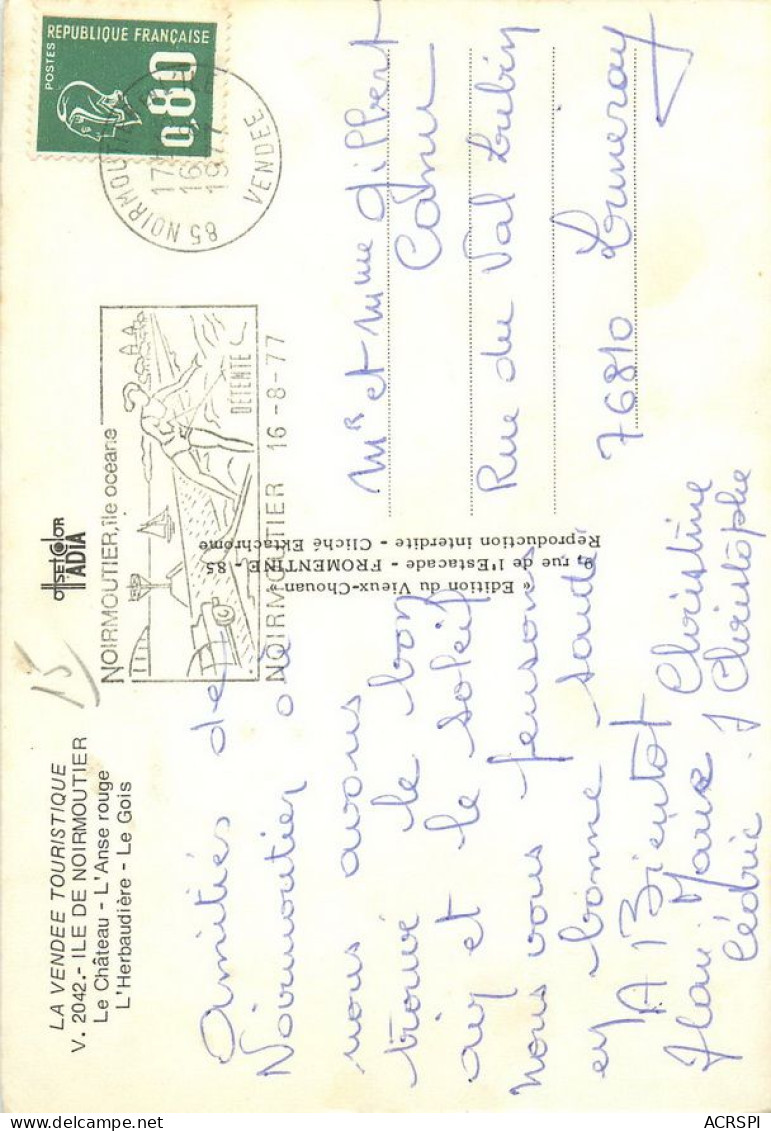 LA VENDEE TOURISTIQUE
V. 2042.- ILE DE NOIRMOUTIER
Le Château - L'Anse rouge
L'Herbaudière - Le Gois
15
OFFSET COLOR
IADIA
Amitiés de
Noirmoutier où
nous avons
trouvé le bon
air et le soleil
nous vous pensons
en bonne santé
A Bientot
Jean Marc Christine
Cédric Christophe
« Edition du Vieux-Chouan »
9, rue de l'Estacade - FROMENTINE - 85
Reproduction interdite - Cliché Ektachrome
NOIRMOUTIER, île océane
DÉTENTE
NOIRMOUTIER 16-8-77
REPUBLIQUE FRANÇAISE
POSTES
0,80
85 NOIRMOUTIER
17
16
1977
VENDEE
Mr et Mme Gilbert
Rue du Val Lubin
76810 Luneray
ACRSPI